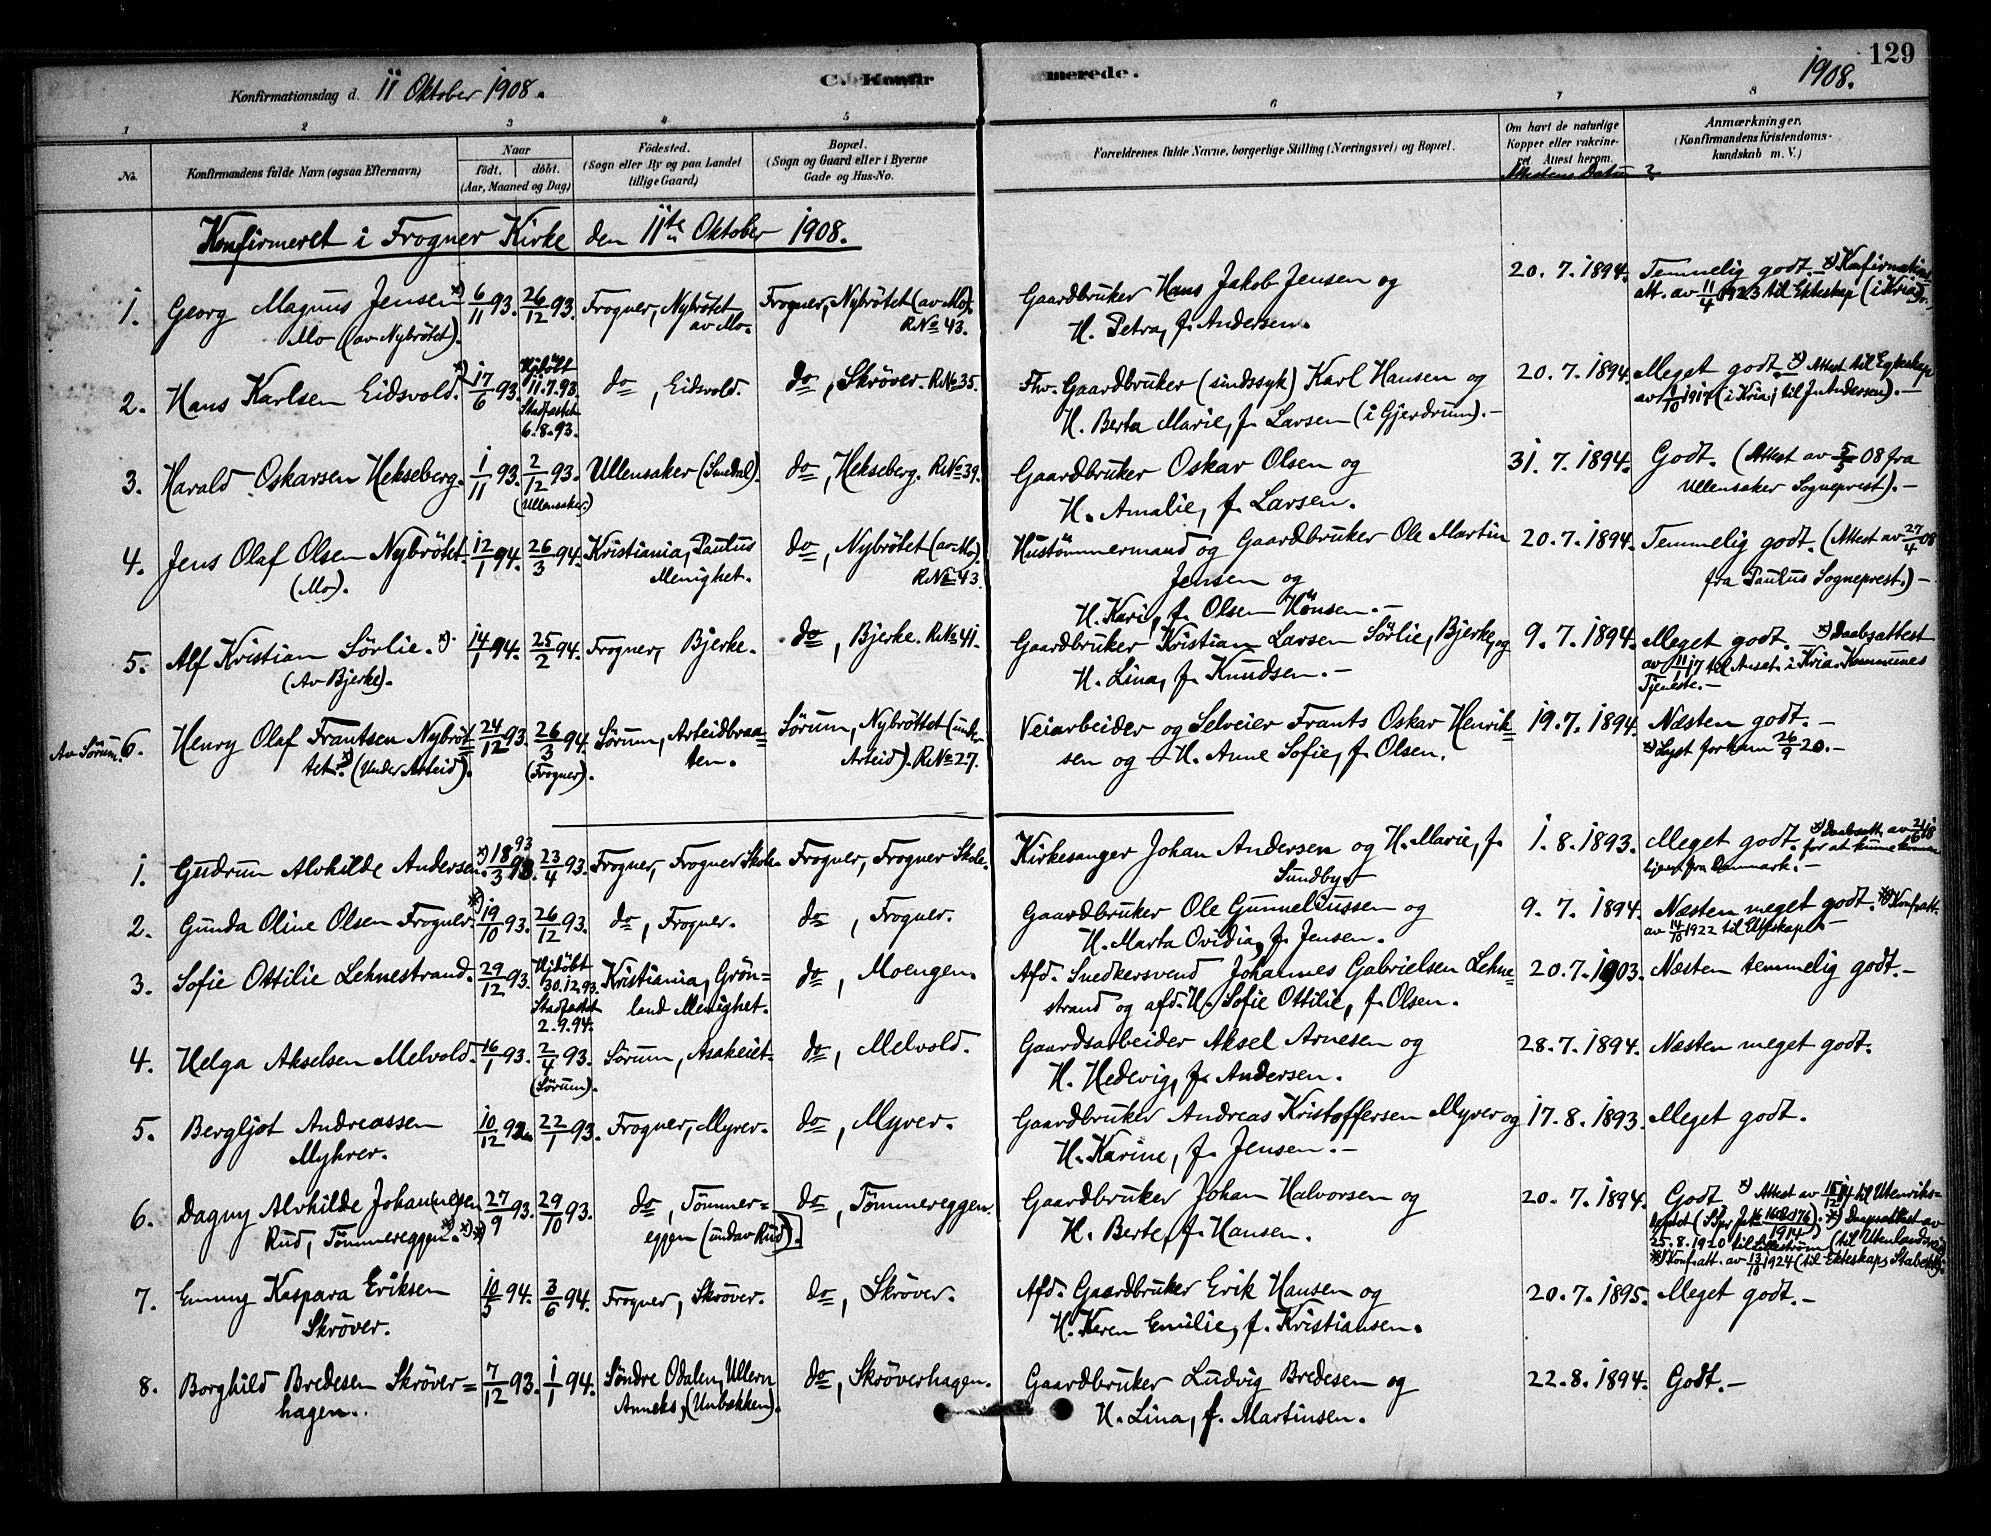 129
1908.
Konfirmationsdag d. 11 Oktober 1908.
C. Konfirmerede.
1 2 3 4 5 6 7 8
No.
Konfirmandens fulde Navn (ogsaa Efternavn)
Naar
født. døbt.
(Aar, Maaned og Dag)
Fødested.
(Sogn eller By og paa Landet
tillige Gaard)
Bopæl.
(Sogn og Gaard eller i Byerne
Gade og Hus-No.
Forældrenes fulde Navne, borgerlige Stilling (Næringsvei) og Bopæl.
Om havt de naturlige
Kopper eller vakcine-
ret. Attest herom.
Attestens Datum?
Anmærkninger.
(Konfirmandens Kristendoms-
kundskab m. V.)
Konfirmeret i Frogner Kirke den 11te Oktober 1908.
1. Georg Magnus Jensen *)
Mo (av Nybrötet).
6/11 93. 26/12 93. Frogner, Nybrötet
av Mo.
Frogner, Nybrötet (av Mo).
R.No 43.
Gaardbruker Hans Jakob Jensen og
H. Petra, f. Andersen.
20. 7. 1894. Temmelig godt. *) Konfirmations
att. av 11/4 1923 til Ekteskap (i Kria).
2. Hans Karlsen Eidsvold. *)
17/6 93. Hjdöbt
11.7.93.
Stadfæstet
6.8.93.
do, Eidsvold. do, Skröver. R.No 35.
Fhv. Gaardbruker (sindssyk) Karl Hansen og
H. Berta Marie, f. Larsen (i Gjerdrum). -
20. 7. 1894. Meget godt. *) Attest til Egteskap
av 1/10 1917 (i Kria; til J. Andersen). -
3. Harald Oskarsen Hekseberg.
1/11 93. 2/12 93.
(Ullensaker.)
Ullensaker (Sundal). do, Hekseberg. R.No 39.
Gaardbruker Oskar Olsen og
H. Amalie, f. Larsen.
31. 7. 1894. Godt. (Attest av 5/5 08 fra
Ullensaker Sogneprest). -
4. Jens Olaf Olsen Nybrötet
(Mo).
12/1 94. 26/3 94. Kristiania, Paulus
Menighet.
do, Nybrötet (av Mo).
R.No 43.
Hustömmermand og Gaardbruker Ole Martin
Jensen og
H. Kari, f. Olsen Hönsen. -
20. 7. 1894. Temmelig godt. (Attest av 27/4 08
fra Paulus Sogneprest.) -
5. Alf Kristian Sörlie. *)
(Av Bjerke).
14/1 94. 25/2 94. Frogner, Bjerke. do, Bjerke. R.No 41.
Gaardbruker Kristian Larsen Sörlie, Bjerke, og
H. Lina, f. Knudsen. -
9. 7. 1894. Meget godt. *) Daabsattest
av 11/1 17 til Anset. i Kria. Kommunes
Tjeneste. -
Av Sörum. 6. Henry Olaf Frantsen Nybröt-
tet. *) (Under Arteid).
24/12 93. 26/3 94.
(Frogner).
Sörum, Arteidbraa-
ten.
Sörum, Nybröttet (under
Arteid). R.No 27.
Veiarbeider og Selveier Frants Oskar Henrik-
sen og H. Anne Sofie, f. Olsen.
19. 7. 1894. Næsten godt. -
*) Lyst for ham 26/9 20. -
1. Gudrun Alvhilde Andersen. *)
18/3 93. 23/4 93. Frogner, Frogner Skole. Frogner, Frogner Skole.
Kirkesanger Johan Andersen og H. Marie, f.
Sundby -
1. 8. 1893. Meget godt. *) Daabsatt. av 21/6 18
for at kunne komme
hjem fra Danmark. -
2. Gunda Oline Olsen Frogner. *)
19/10 93. 26/12 93. do, Frogner. do, Frogner.
Gaardbruker Ole Gunneliussen og
H. Marta Ovidia, f. Jensen.
9. 7. 1894. Næsten meget godt. *) Konf.att.
av 14/10 1922 til Ekteskap. -
3. Sofie Ottilie Lehnestrand.
29/12 93. Hjdöbt
30.12.93.
Stadfæstet
2.9.94.
Kristiania, Grön-
land Menighet.
do, Moengen.
Afd. Snedkersvend Johannes Gabrielsen Lehne-
strand og afd. H. Sofie Ottilie, f. Olsen.
20. 7. 1903. Næsten temmelig godt. -
4. Helga Akselsen Melvold.
16/1 93. 2/4 93.
(Sörum).
Sörum, Asakeiet- do, Melvold.
Gaardsarbeider Aksel Arnesen og
H. Hedevig, f. Andersen.
28. 7. 1894. Næsten meget godt.
5. Bergljot Andreassen
Myhrer.
10/12 92. 22/1 93. Frogner, Myrer. do, Myrer.
Gaardbruker Andreas Kristoffersen Myrer og
H. Karine, f. Jensen. -
17. 8. 1893. Meget godt.
6. Dagny Alvhilde Johannesen
Rud, Tömmereggen. *) *) *)
27/9 93. 29/10 93. do, Tömmer-
eggen (und av Rud).
do, Tömmereggen.
Gaardbruker Johan Halvorsen og
H. Berte, f. Hansen.
20. 7. 1894. Godt *) Attest av 15/12 14 til Utenriks-
*) Daapsattest av
25.8.1920 til Lilleström (til Utenlandsreis
*) Konfratt. av 13/10 1924 (til Ekteskap, Stabekk).
7. Emmy Kaspara Eriksen
Skröver.
10/5 94. 3/6 94. Frogner, Skröver. do, Skröver.
Afd. Gaardbruker Erik Hansen og
H. Karen Emilie, f. Kristiansen.
20. 7. 1895. Meget godt. -
8. Borghild Bredesen Skröver-
hagen.
7/12 93. 1/1 94. Söndre Odalen, Ullern
Anneks, (Unbækken).
do, Skröverhagen.
Gaardbruker Ludvig Bredesen og
H. Lina, f. Martinsen.
22. 8. 1894. Godt. -